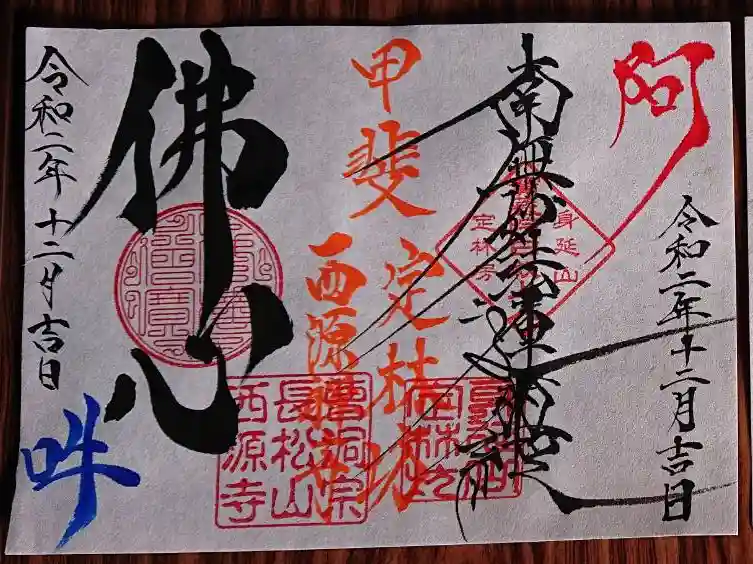 阿
令和二年十二月吉日
南無妙法蓮華経
身延山
甲斐 定林坊
西源禅寺
曹洞宗
長松山
西源寺
佛心
令和二年十二月吉日
吽